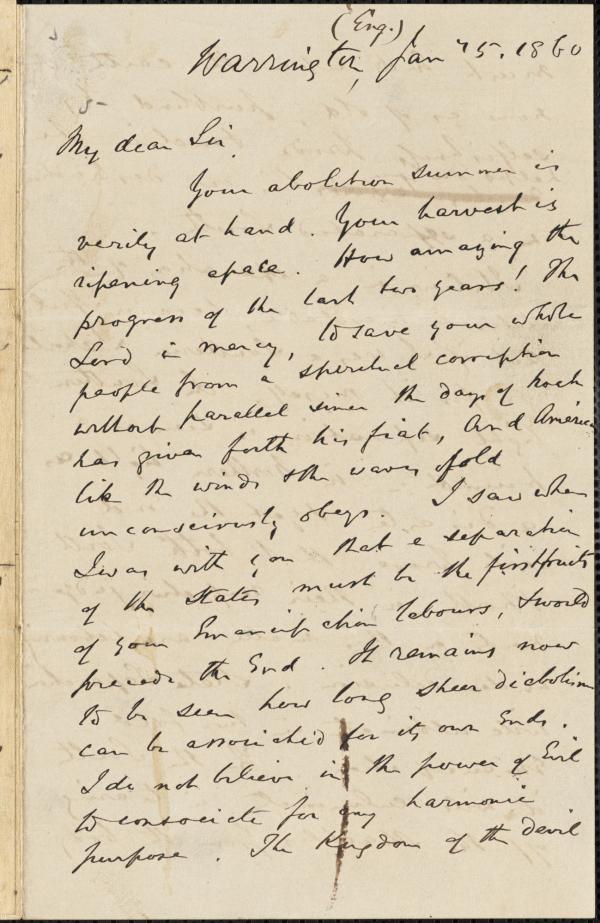 (Eng.)
Warrington, Jan 25. 1860
My dear Sir
Your abolition summer is
verily at hand. Your harvest is
ripening apace. How amazing the
progress of the last two years! The
Lord in mercy, to save your whole
people from a spiritual corruption
without parallel since the days of Noah
has given forth his fiat, And America
like the winds & the waves of old
unconsciously obeys. I saw when
I was with you that a separation
of the States must be the firstfruits
of your Emancipation labours, & would
precede the End. It remains now
to be seen how long sheer diabolism
can be associated for its own Ends.
I do not believe in the power of Evil
to consociate for any harmonic
purpose. The Kingdom of the Devil